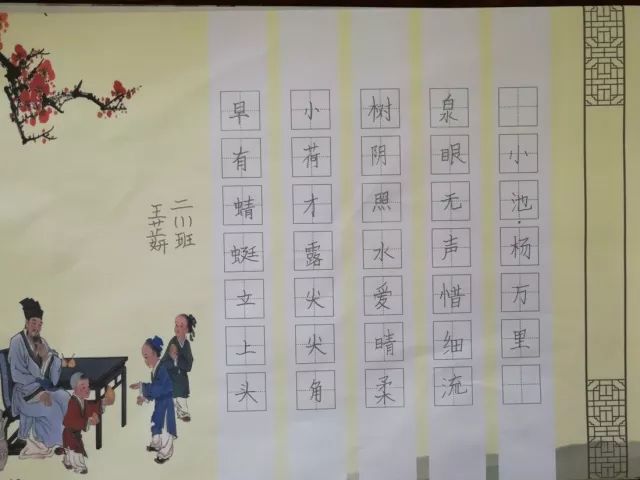 小池·杨万里
泉眼无声惜细流
树阴照水爱晴柔
小荷才露尖尖角
早有蜻蜓立上头
二(1)班
王芷妍